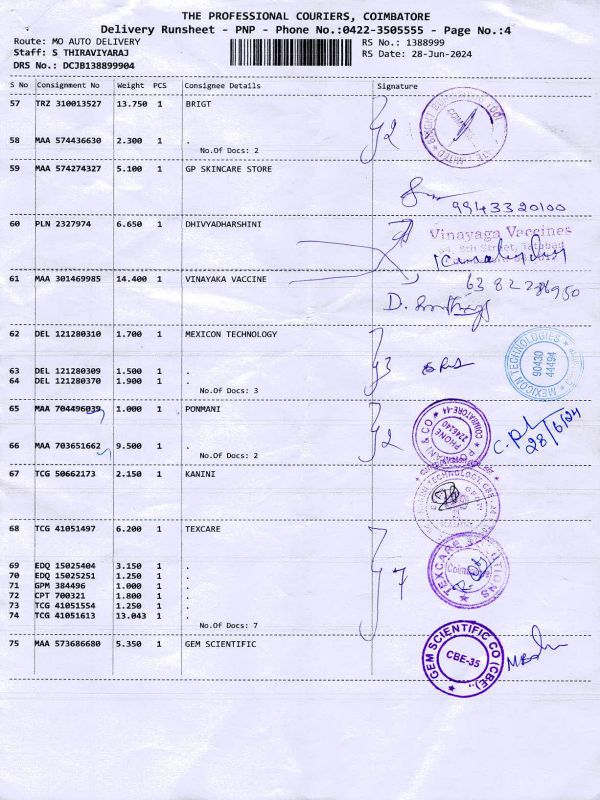 THE PROFESSIONAL COURIERS, COIMBATORE
Delivery Runsheet - PNP - Phone No.:0422-3505555 - Page No.:4
Route: MO AUTO DELIVERY
RS No.: 1388999
Staff: S THIRAVIYARAJ
RS Date: 28-Jun-2024
DRS No.: DCJB138899904
S No Consignment No Weight PCS Consignee Details Signature
57 TRZ 310013527 13.750 1 BRIGT
58 MAA 574436630 2.300 1 .
No.Of Docs: 2
2
59 MAA 574274327 5.100 1 GP SKINCARE STORE
9943320100
60 PLN 2327974 6.650 1 DHIVYADHARSHINI
Vinayaga Vaccines
61 MAA 301469985 14.400 1 VINAYAKA VACCINE
62 DEL 121280310 1.700 1 MEXICON TECHNOLOGY
63 DEL 121280309 1.500 1 .
64 DEL 121280370 1.900 1 .
No.Of Docs: 3
3
MEXICON TECHNOLOGIES
90430
44494
65 MAA 704496039 1.000 1 PONMANI
66 MAA 703651662 9.500 1 .
No.Of Docs: 2
2
COIMBATORE-44
PHONE
2246140
28/6/24
67 TCG 50662173 2.150 1 KANINI
68 TCG 41051497 6.200 1 TEXCARE
69 EDQ 15025404 3.150 1 .
70 EDQ 15025251 1.250 1 .
71 GPM 384496 1.000 1 .
72 CPT 700321 1.800 1 .
73 TCG 41051554 1.250 1 .
74 TCG 41051613 13.043 1 .
No.Of Docs: 7
7
TEXCARE SOLUTIONS
Coimbatore
75 MAA 573686680 5.350 1 GEM SCIENTIFIC
GEM SCIENTIFIC CO (CBE).,
CBE-35